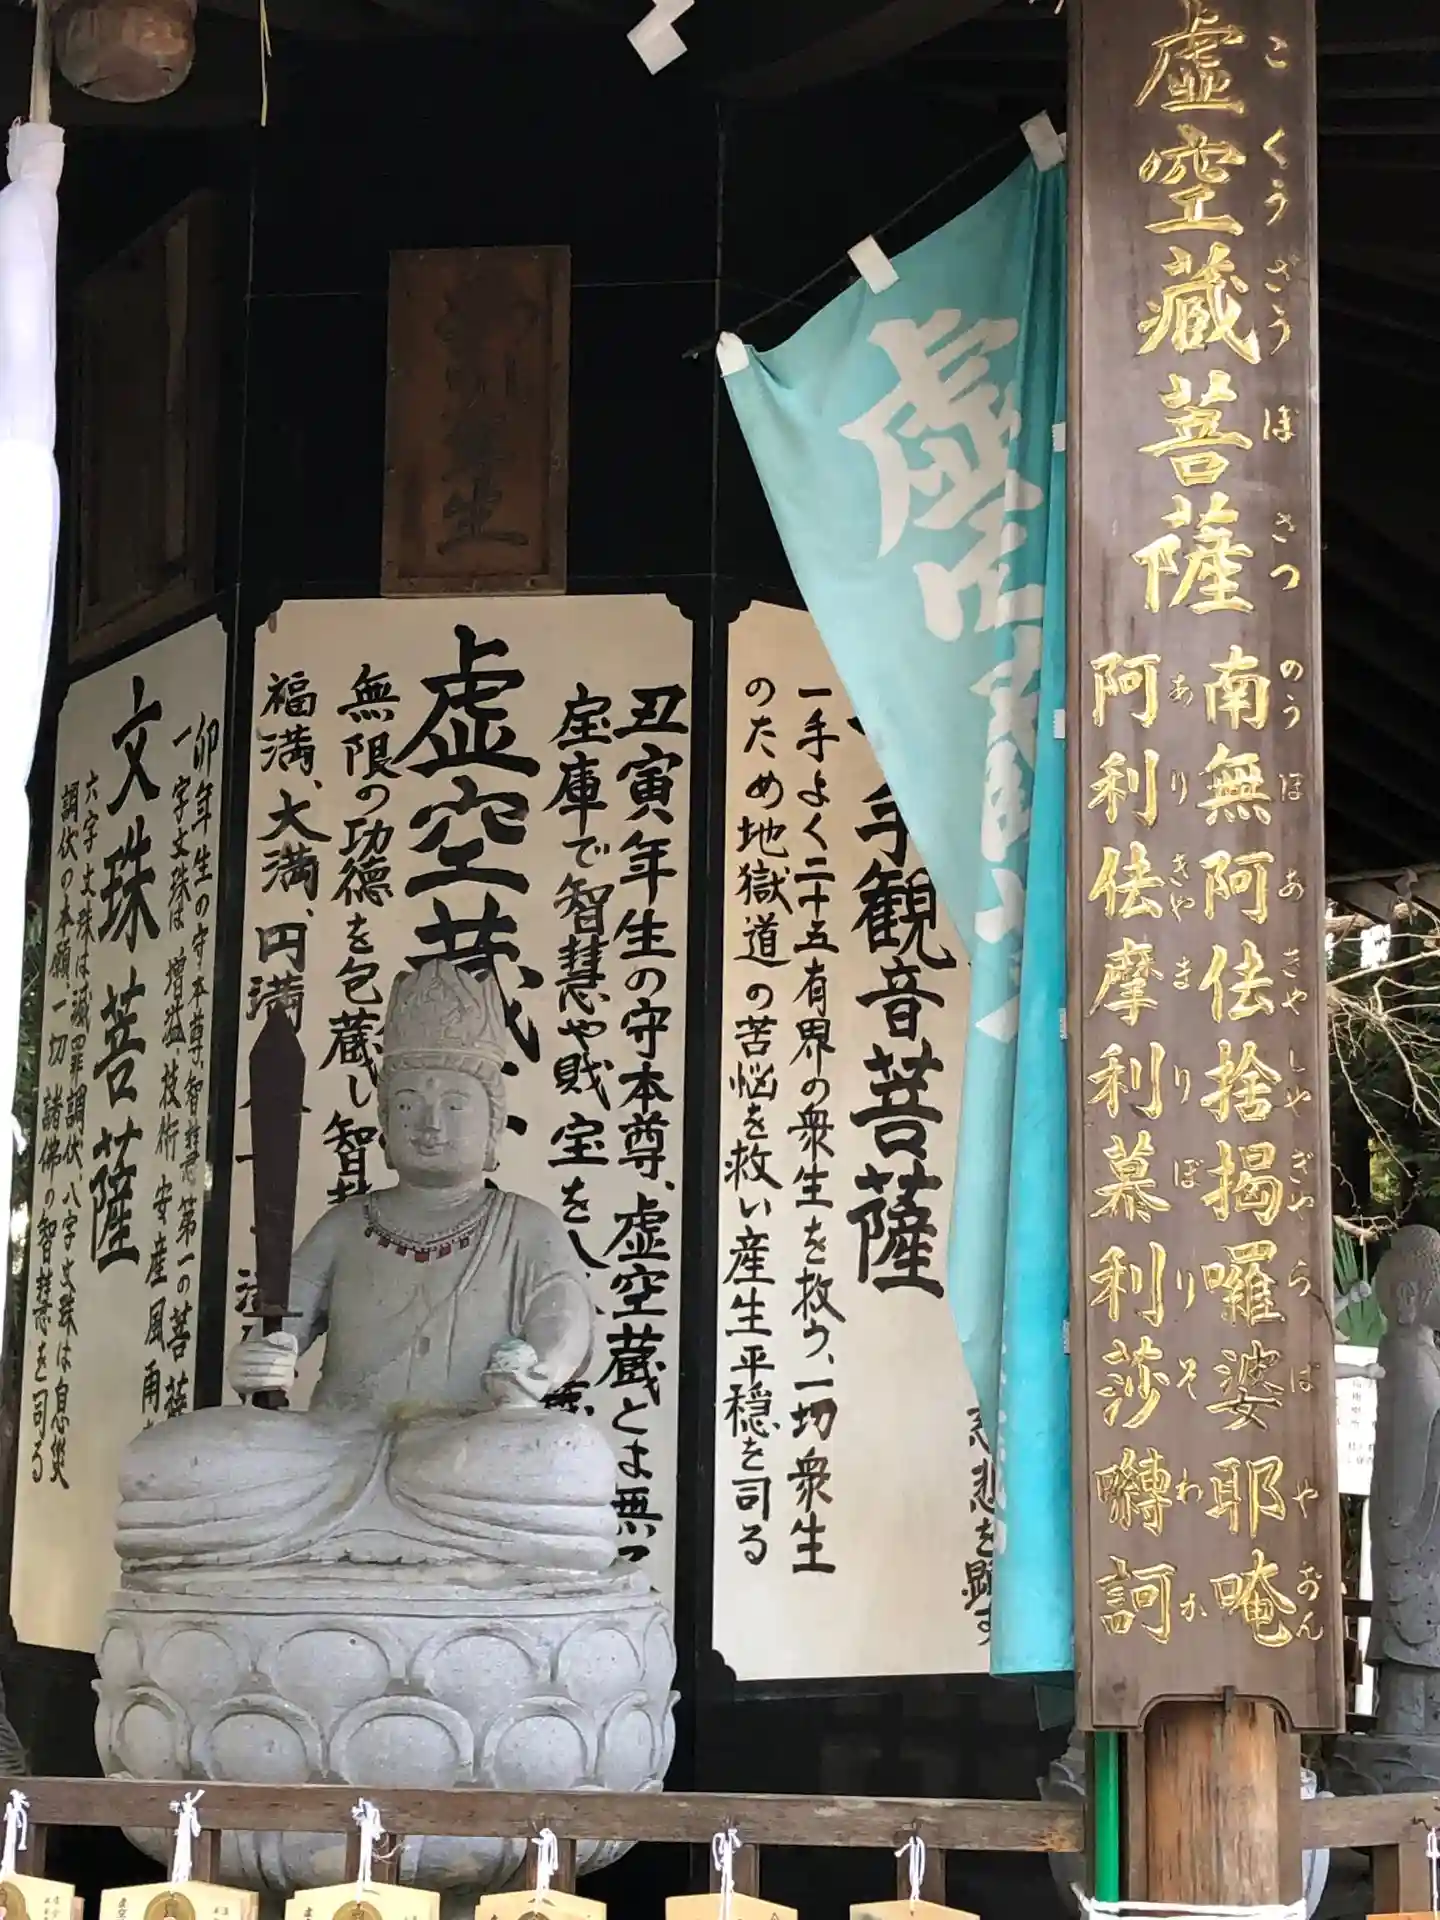 虚空蔵菩薩
こくうざうぼさつ
南無阿佉捨掲囉婆耶唵
のうほあきやしやぎやらばやおん
阿利佉摩利慕利莎嚩訶
ありきやまりぼりそわか
虚空蔵
手観音菩薩
一手よく二十五有界の衆生を救う、一切衆生
のため地獄道の苦悩を救い産生平穏を司る
丑寅年生の守本尊、虚空蔵とは無
宝庫で智慧や財宝を
虚空蔵
無限の功徳を包蔵し智慧
福満、大満、円満
卯年生の守本尊、智慧第一の菩薩
一字文殊は増益、技術 安産 風雨
文珠菩薩
六字文殊は滅罪調伏、八字文殊は息災
調伏の本願、一切諸佛の智慧を司る